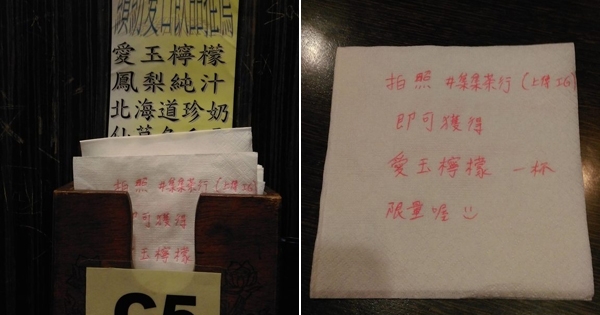 愛玉檸檬
鳳梨純汁
北海道珍奶
拍照 #集集茶行 (上傳IG)
即可獲得
愛玉檸檬
C5
拍照 #集集茶行 (上傳IG)
即可獲得
愛玉檸檬 一杯
限量喔